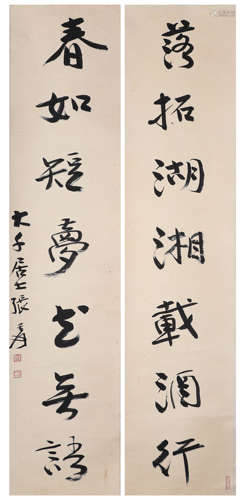 落拓湖湘載酒行
春如短夢花無語
大千居士張爰